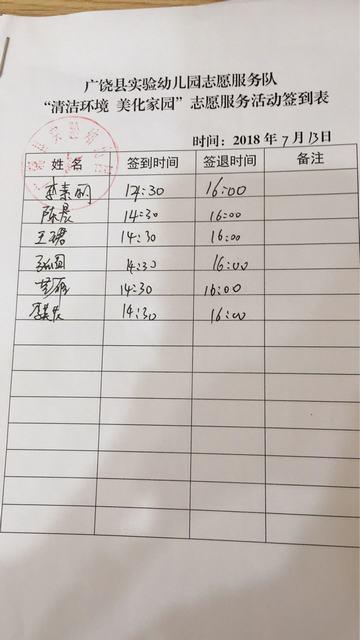 广饶县实验幼儿园志愿服务队
“清洁环境 美化家园”志愿服务活动签到表
时间：2018 年 7 月 13日
姓 名 签到时间 签退时间 备注
李素丽 14:30 16:00
陈晨 14:30 16:00
王珺 14:30 16:00
14:30 16:00
14:30 16:00
14:30 16:00